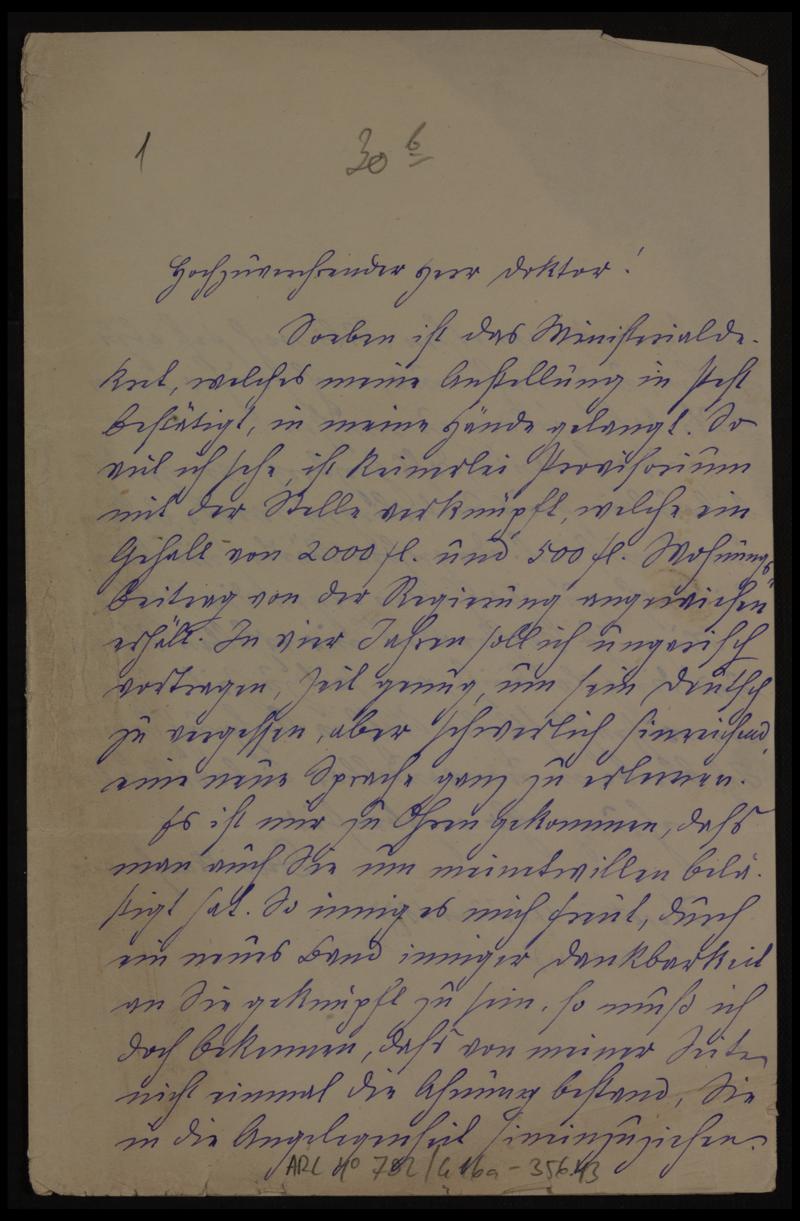 1
30 b
Hochzuverehrender Herr Doktor!
Soeben ist das Ministerialde-
kret, welches meine Anstellung in Pest
bestätigt, in meine Hände gelangt. So
viel ich sehe, ist keinerlei Provisorium
mit der Stelle verknüpft, welche ein
Gehalt von 2000 fl. und 500 fl. Wohnungs-
beitrag von der Regierung angewiesen
erhält. In vier Jahren soll ich ungarisch
vortragen, Zeit genug, um sein Deutsch
zu vergessen, aber schwerlich hinreichend,
eine neue Sprache ganz zu erlernen.
Es ist mir zu Ohren gekommen, daß
man auch Sie um meinetwillen belä-
stigt hat. So innig es mich freut, durch
ein neues Band inniger Dankbarkeit
an Sie geknüpft zu sein, so muß ich
doch bekennen, daß von meiner Seite
nicht einmal die Ahnung bestand, Sie
in die Angelegenheit hineinzuziehen.
ARC 4° 792/G 16a - 356.43